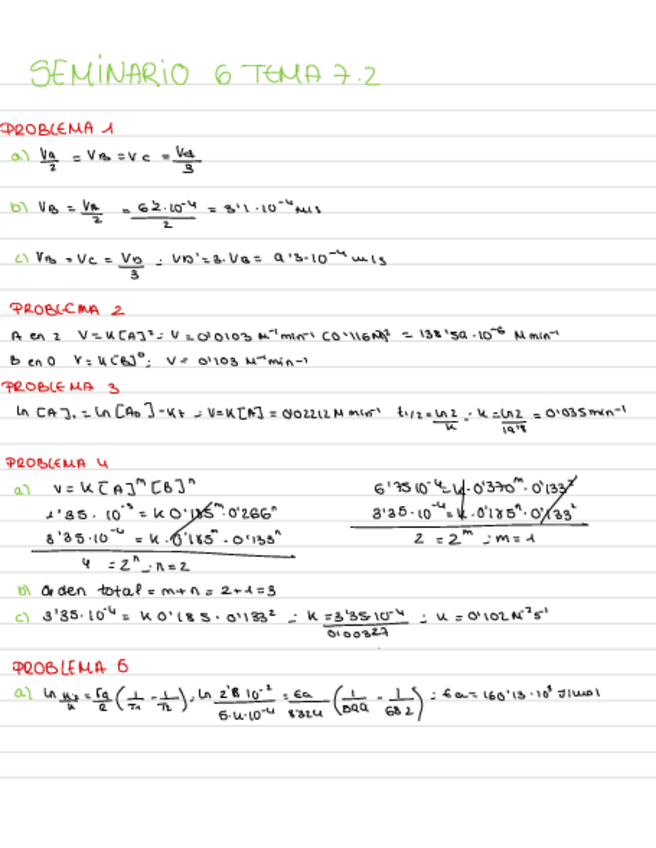 SEMINARIO 6 TEMA 7.2
PROBLEMA 1
a) Va/2 = VB = VC = Vd/3
b) VB = VA/2 = 6'2·10⁻⁴/2 = 3'1·10⁻⁴ M/s
c) VB = VC = VD/3 : VD = 3·Va = 9'3·10⁻⁴ M/s
PROBLEMA 2
A en 2 V = K[A]² : V = 0'0103 M⁻¹min⁻¹ [0'116M]² = 138'59·10⁻⁶ M min⁻¹
B en 0 V = K[B]⁰ ; V = 0'103 M⁻¹min⁻¹
PROBLEMA 3
ln [A]t = ln [A0] - Kt : V = K[A] = 0'02212 M min⁻¹ t1/2 = ln2/K : K = ln2/19'8 = 0'035 min⁻¹
PROBLEMA 4
a) V = K [A]ᵐ [B]ⁿ
1'35·10⁻³ = K 0'185ᵐ·0'266ⁿ
3'35·10⁻⁴ = K·0'185ᵐ·0'133ⁿ
4 = 2ⁿ : n = 2
6'75·10⁻⁴ = K·0'370ᵐ·0'133²
3'35·10⁻⁴ = K·0'185ᵐ·0'133²
2 = 2ᵐ : m = 1
b) Orden total = m+n = 2+1 = 3
c) 3'35·10⁻⁴ = K 0'185·0'133² : K = 3'35·10⁻⁴/0'00327 : K = 0'102 M⁻²s⁻¹
PROBLEMA 5
a) ln K2/K = Ea/R (1/T1 - 1/T2) , ln 2'8·10⁻²/5·4·10⁻⁴ = Ea/8'324 (1/599 - 1/682) : Ea = 160'13·10³ J/mol